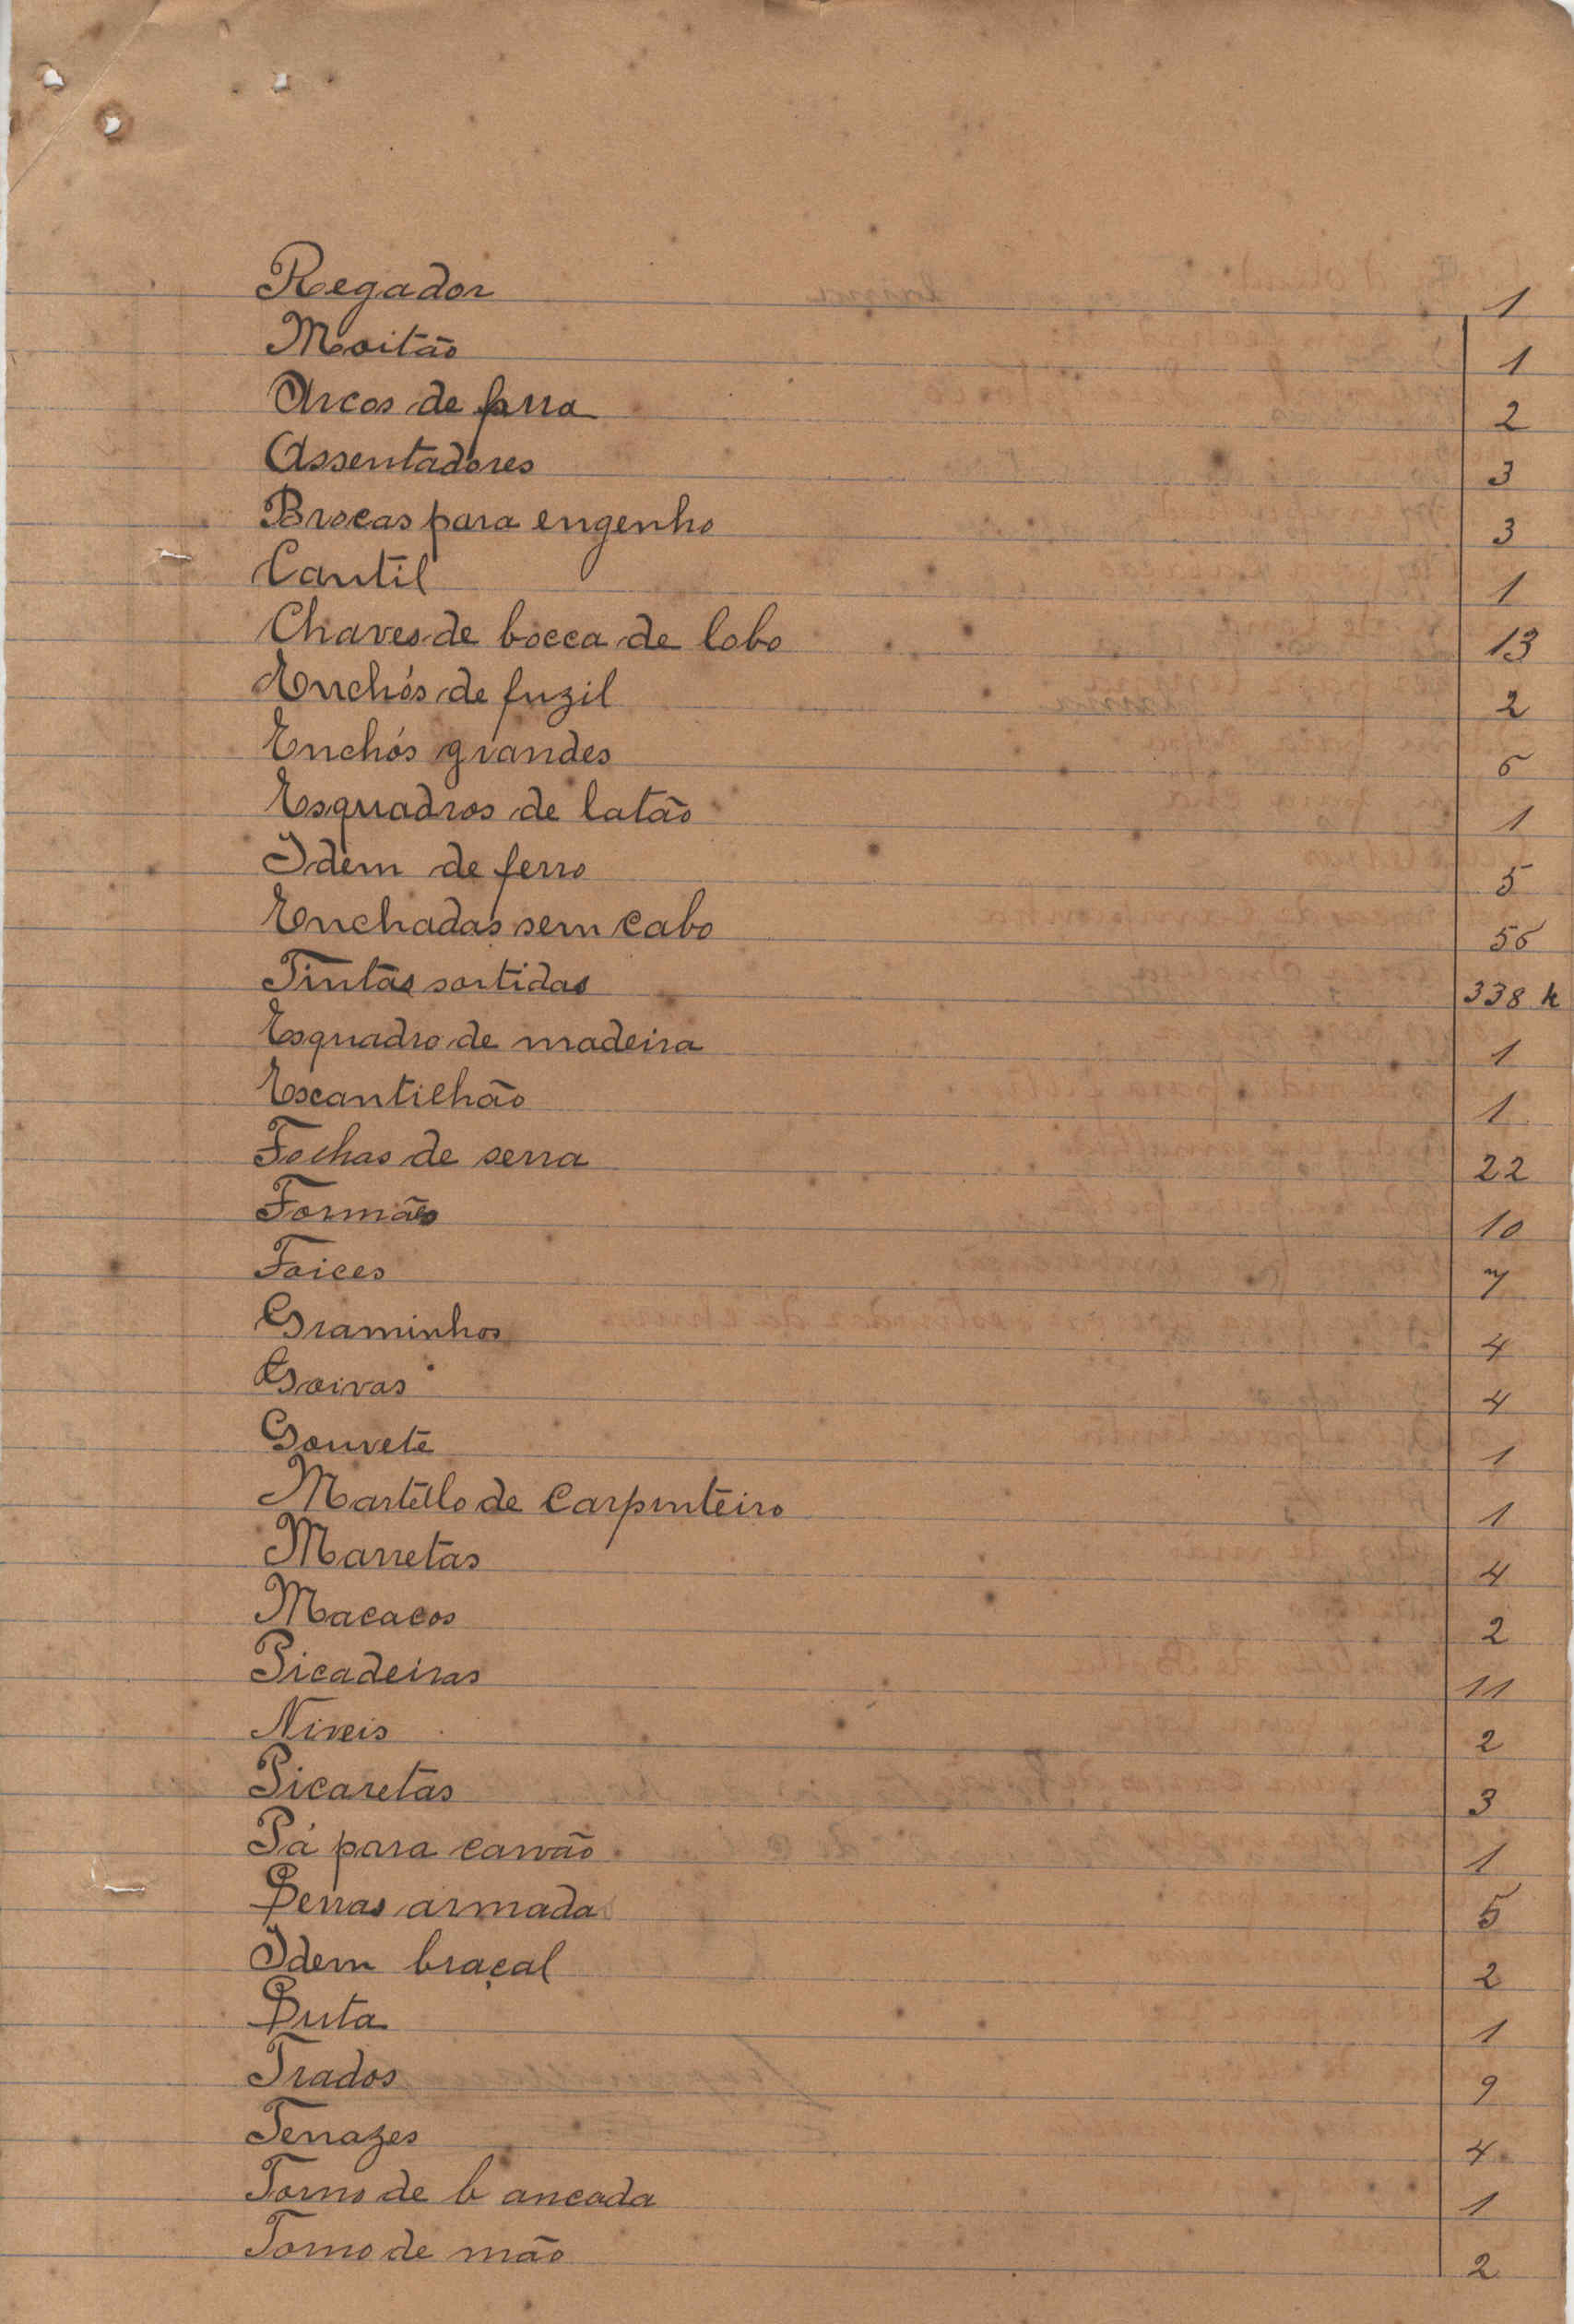 Regador 1
Moitão 1
Arcos de pua 2
Assentadores 3
Brocas para engenho 3
Cantil 1
Chaves de bocca de lobo 13
Enchós de fuzil 2
Enchós grandes 6
Esquadros de latão 1
Idem de ferro 5
Enchadas sem cabo 56
Tintas sortidas 338 k
Esquadro de madeira 1
Escantilhão 1
Folhas de serra 22
Formões 10
Foices 7
Graminhos 4
Goivas 4
Gouvete 1
Martello de carpinteiro 1
Marretas 4
Macacos 2
Picadeiras 11
Niveis 2
Picaretas 3
Pá para carvão 1
Serras armadas 5
Idem braçal 2
Suta 1
Trados 9
Tenazes 4
Torno de bancada 1
Torno de mão 2